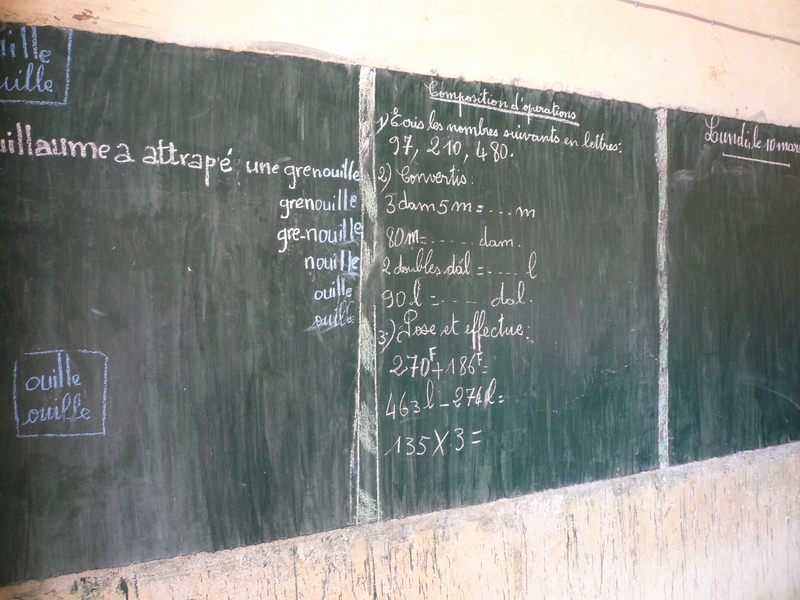 ille
uille
uillaume a attrapé une grenouille
grenouille
gre-nouille
nouille
ouille
ouille
ouille
ouille
Composition d'operations
1) Ecris les nombres suivants en lettres:
97, 210, 480.
2) Convertis:
3 dam 5 m = .... m
80 m = ...... dam.
2 doubles dal = ..... l
90 l = ...... dal.
3) Pose et effectue:
270F + 186F =
463 l - 274 l =
135 X 3 =
Lundi le 10 mars